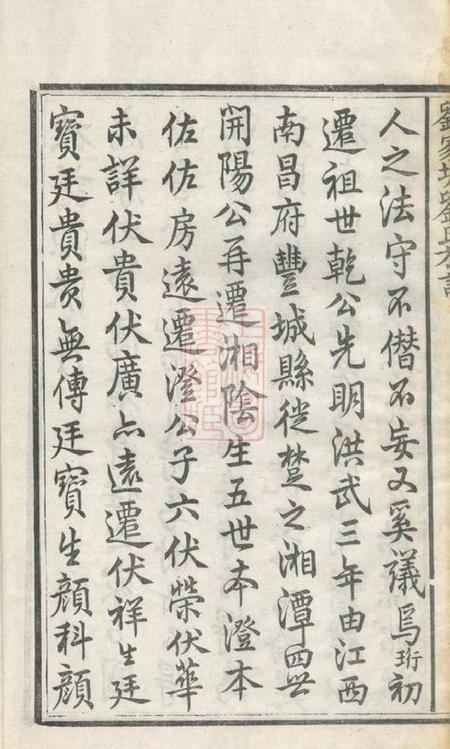 人之法守不僭不妄又奚議焉珩初
遷祖世乾公先明洪武三年由江西
南昌府豐城縣徙楚之湘潭四世
開陽公再遷湘陰生五世本澄本
佐佐房遠遷澄公子六伏榮伏華
未詳伏貴伏廣亦遠遷伏祥生廷
寶廷貴貴無傳廷寶生顏科顏